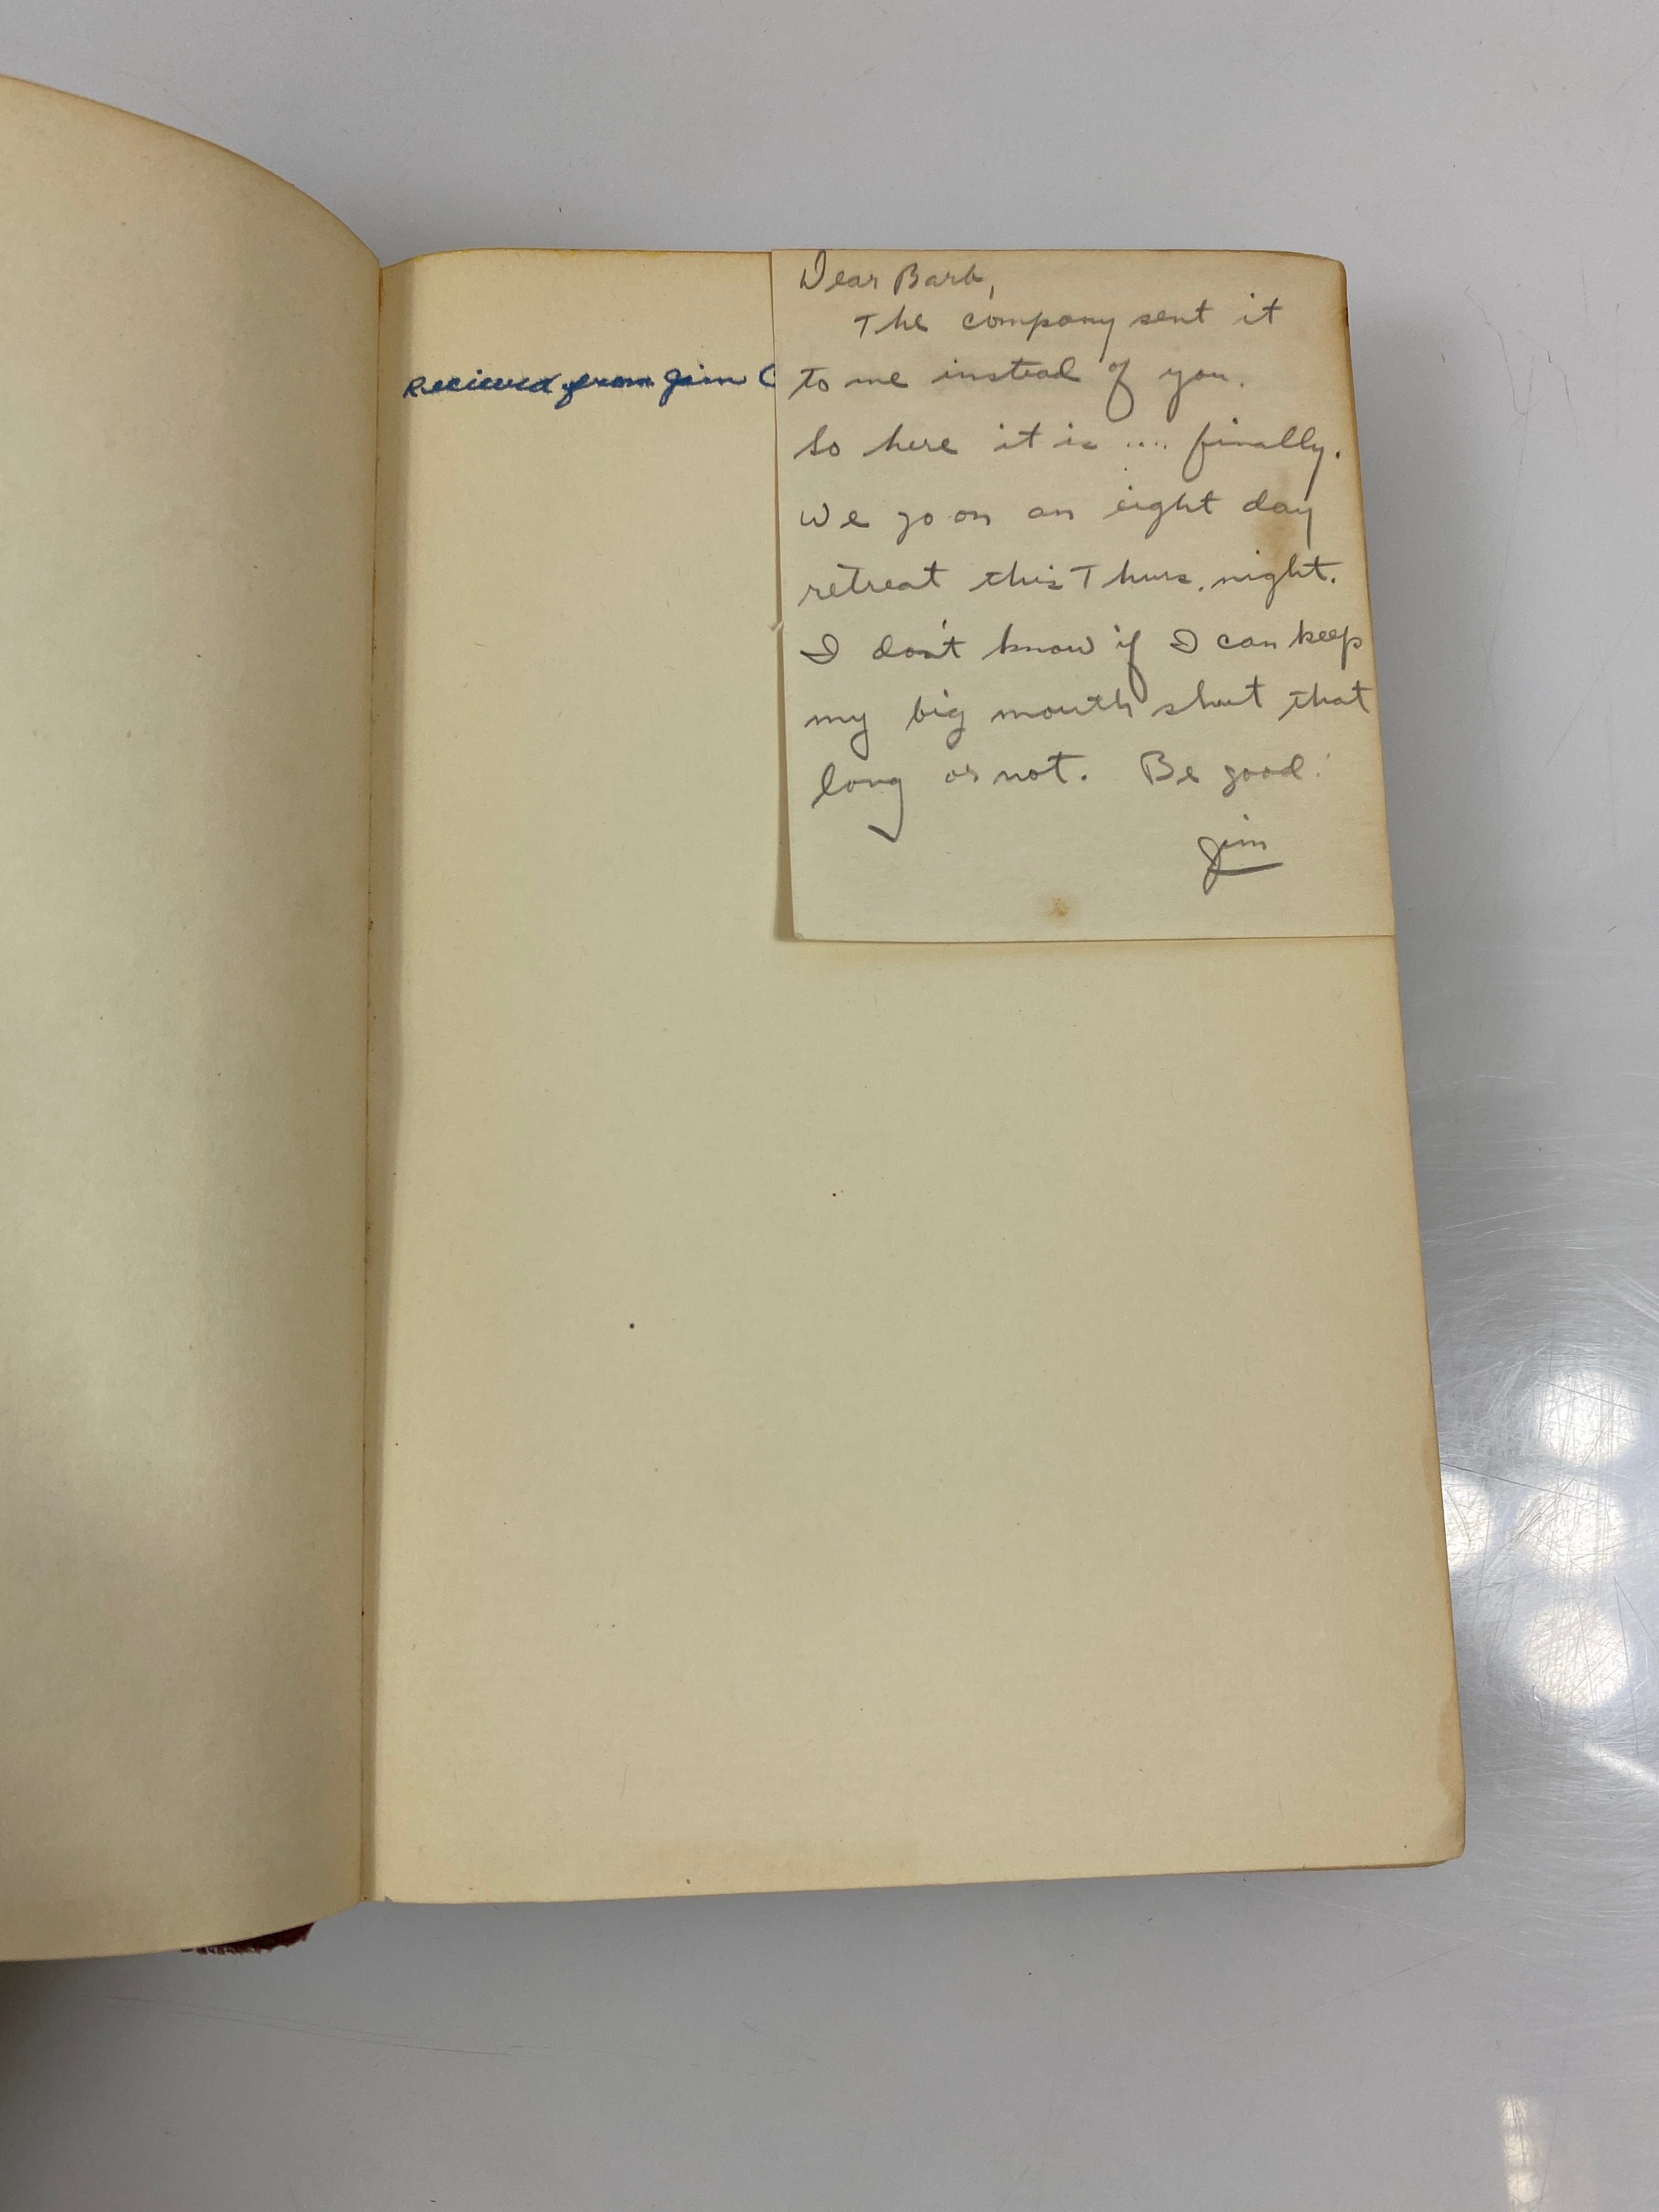 Recieved from Jim C
Dear Barb,
The company sent it
to me instead of you.
So here it is .... finally.
We go on an eight day
retreat this Thurs. night.
I don't know if I can keep
my big mouth shut that
long or not. Be good!
Jim